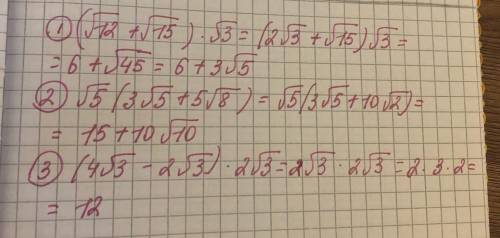 ① (√12 + √15) · √3 = (2√3 + √15)√3 =
= 6 + √45 = 6 + 3√5
② √5 (3√5 + 5√8) = √5(3√5 + 10√2) =
= 15 + 10√10
③ (4√3 - 2√3) · 2√3 = 2√3 · 2√3 = 2 · 3 · 2 =
= 12